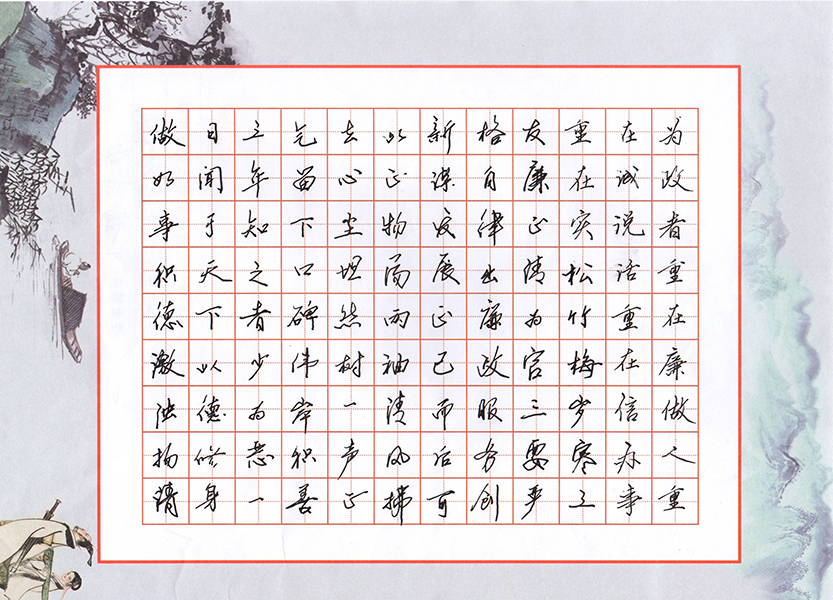 为政者重在廉做人重
在诚说话重在信办事
重在实松竹梅岁寒三
友廉正清为官三要严
格自律出廉政服务创
新谋发展正己而后可
以正物两袖清风
去心尘坦然树一声正
气留下口碑伟岸积善
三年知之者少为恶一
日闻于天下以德修身
做好事积德激浊扬清